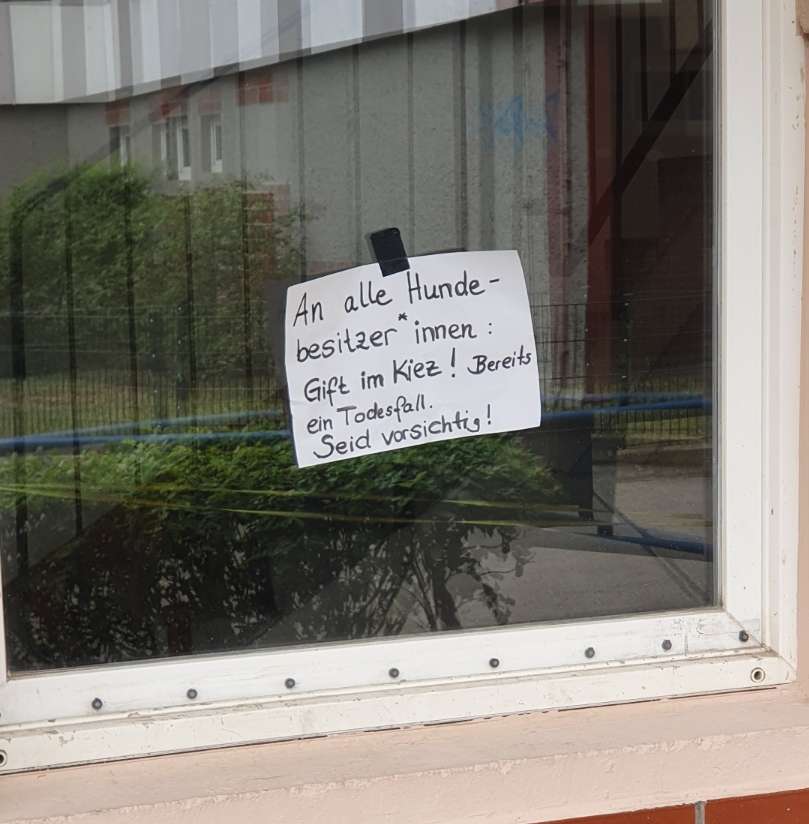 An alle Hunde-
besitzer*innen:
Gift im Kiez! Bereits
ein Todesfall.
Seid vorsichtig!